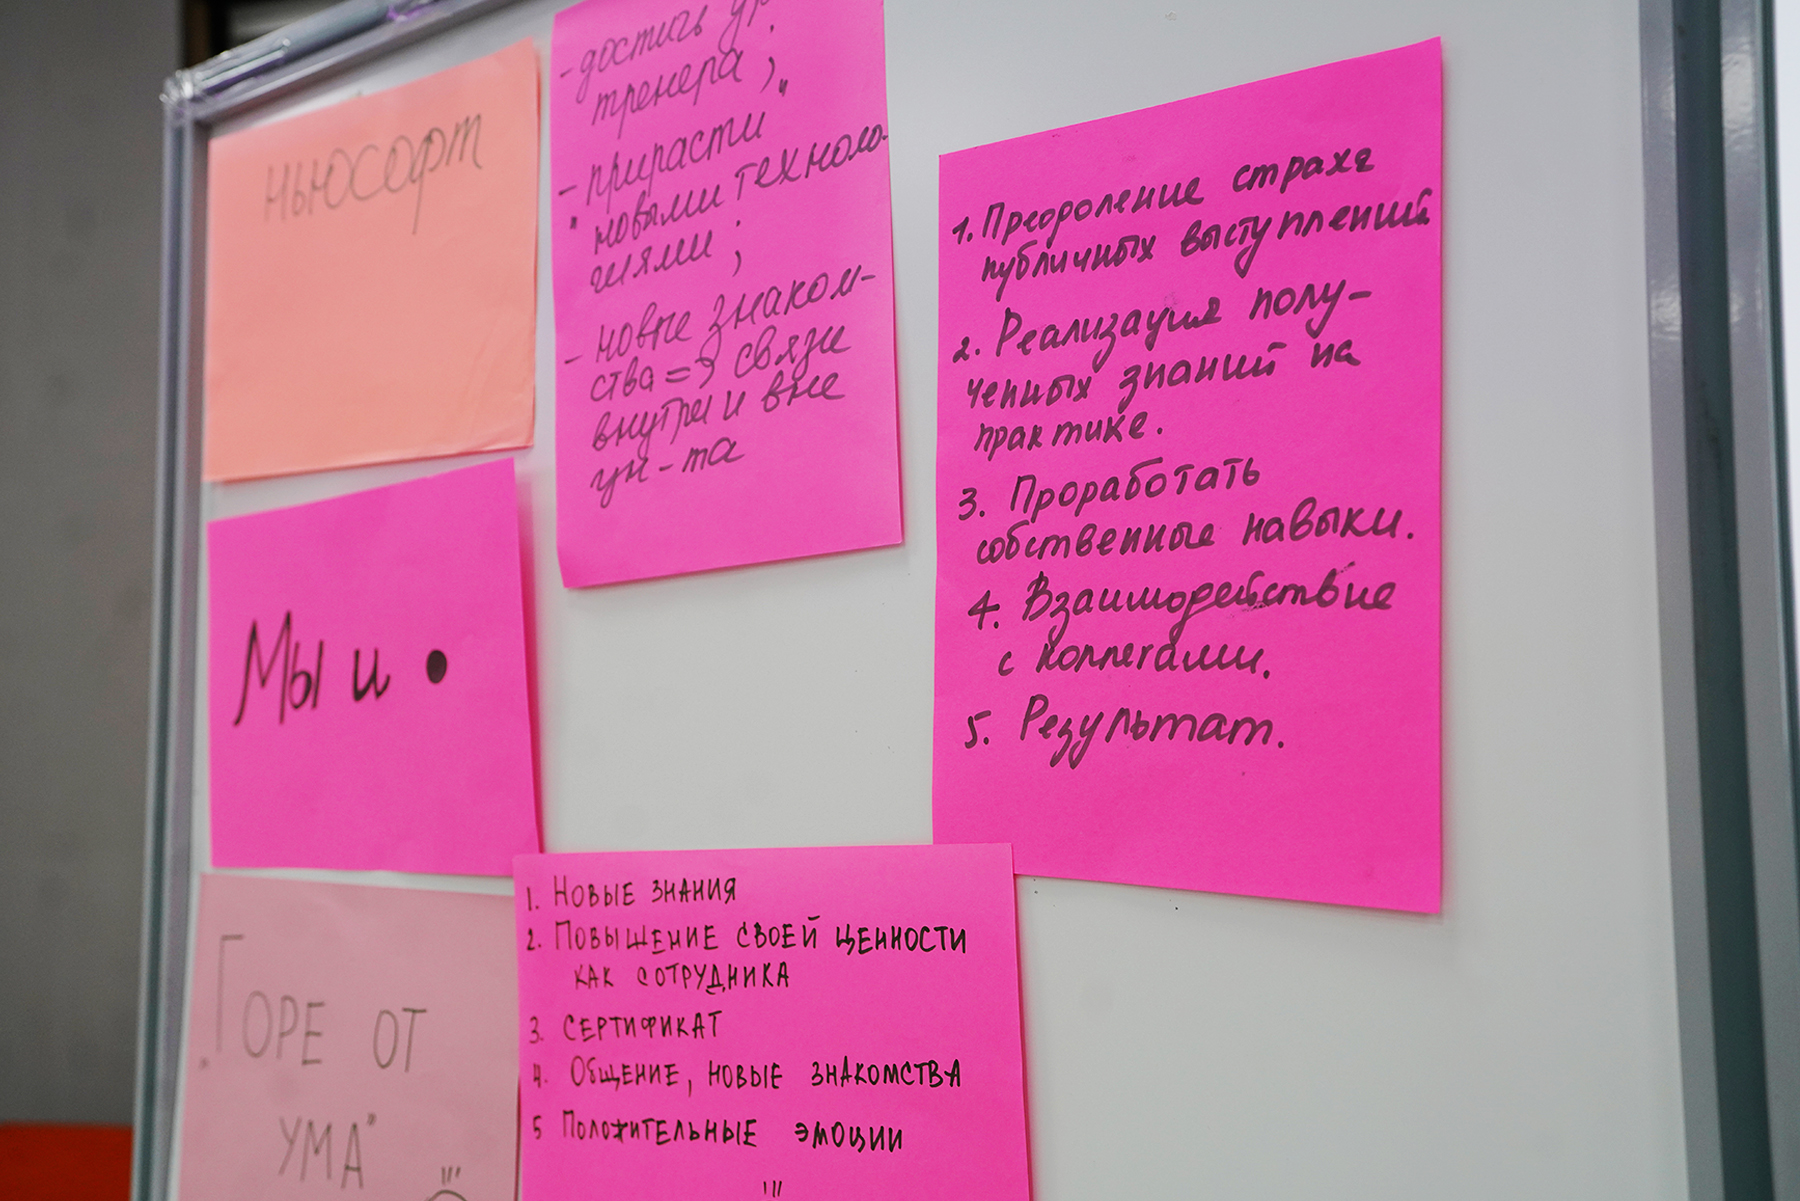 ньюсофт
Мы и •
„Горе от
ума"
- достичь ур.
тренера;
- „прирасти"
новыми техноло-
гиями;
- новые знаком-
ства => связи
внутри и вне
ун-та
1. Преодоление страха
публичных выступлений
2. Реализация полу-
ченных знаний на
практике.
3. Проработать
собственные навыки.
4. Взаимодействие
с коллегами.
5. Результат.
1. Новые знания
2. Повышение своей ценности
как сотрудника
3. Сертификат
4. Общение, новые знакомства
5 Положительные эмоции
!!!